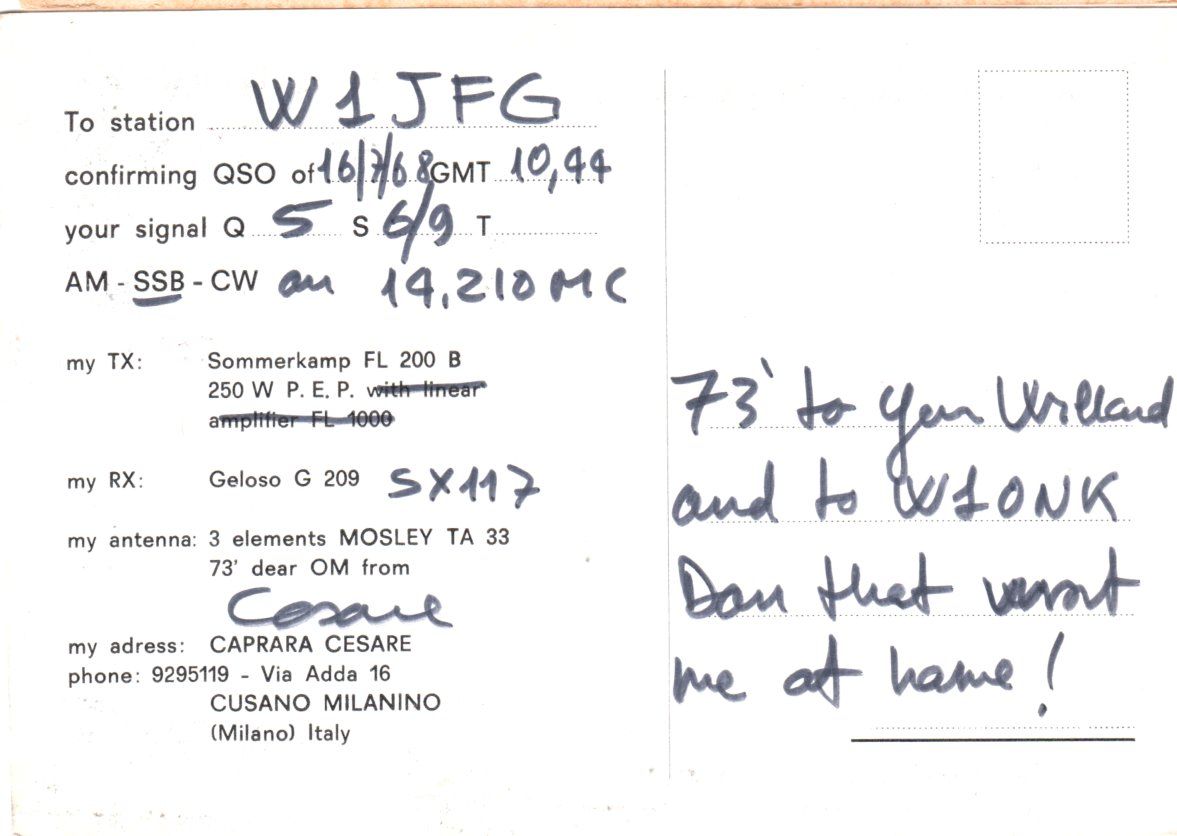 To station W1JFG
confirming QSO of 16/7/68 GMT 10,44
your signal Q 5 S 6/9 T
AM - SSB - CW on 14,210 MC
my TX: Sommerkamp FL 200 B
250 W P. E. P. with linear
amplifier FL 1000
my RX: Geloso G 209 SX117
my antenna: 3 elements MOSLEY TA 33
73' dear OM from
Cesare
my adress: CAPRARA CESARE
phone: 9295119 - Via Adda 16
CUSANO MILANINO
(Milano) Italy
73' to you Willard
and to W1ONK
Dan that
me at home!